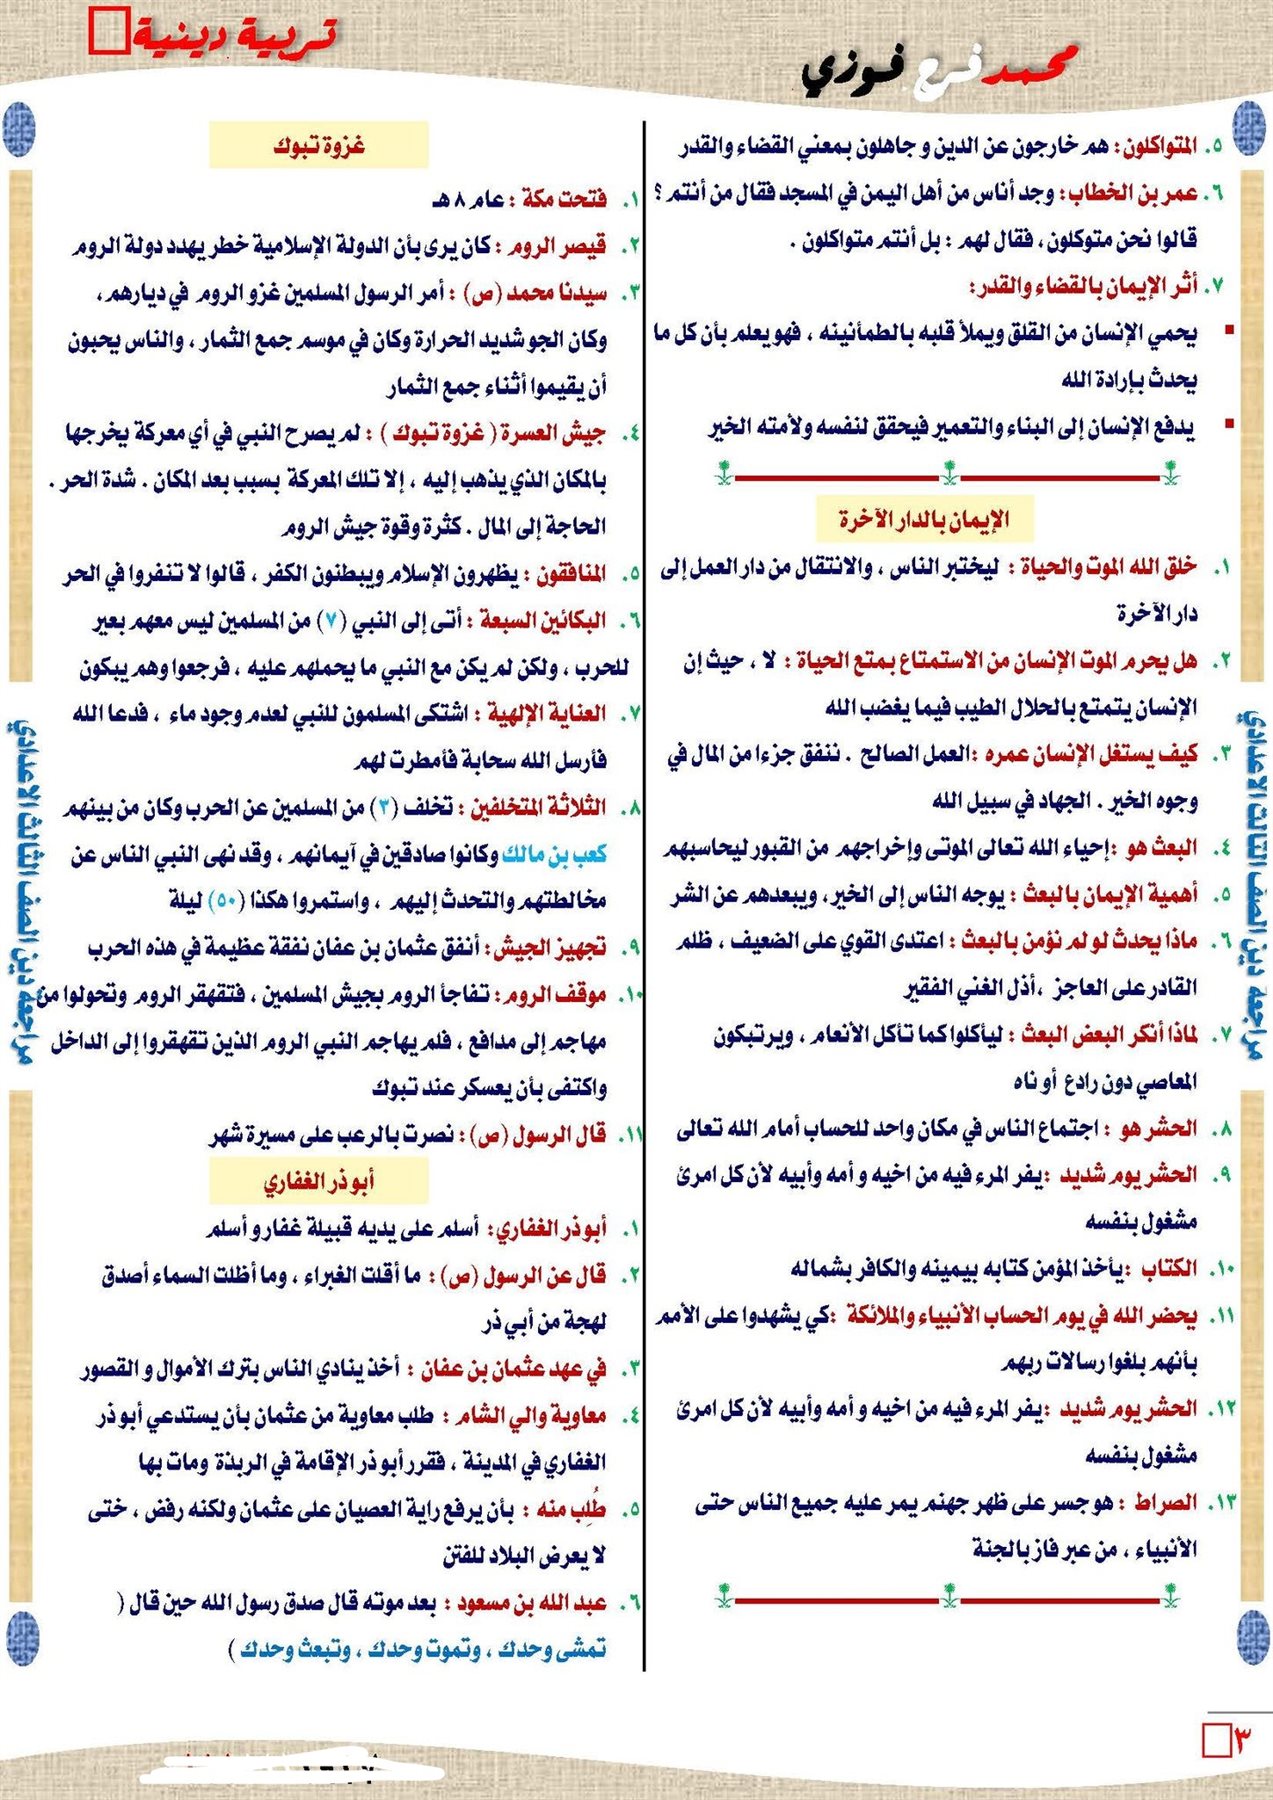 محمد فرج فوزي
تربية دينية
٥. المتواكلون: هم خارجون عن الدين و جاهلون بمعني القضاء والقدر
٦. عمر بن الخطاب: وجد أناس من أهل اليمن في المسجد فقال من أنتم ؟
قالوا نحن متوكلون ، فقال لهم : بل أنتم متواكلون .
٧. أثر الإيمان بالقضاء والقدر:
▪ يحمي الإنسان من القلق ويملأ قلبه بالطمأنينه ، فهو يعلم بأن كل ما
يحدث بإرادة الله
▪ يدفع الإنسان إلى البناء والتعمير فيحقق لنفسه ولأمته الخير
الإيمان بالدار الآخرة
١. خلق الله الموت والحياة : ليختبر الناس ، والانتقال من دار العمل إلى
دار الآخرة
٢. هل يحرم الموت الإنسان من الاستمتاع بمتع الحياة : لا ، حيث إن
الإنسان يتمتع بالحلال الطيب فيما يغضب الله
٣. كيف يستغل الإنسان عمره :العمل الصالح . ننفق جزءا من المال في
وجوه الخير . الجهاد في سبيل الله
٤. البعث هو :إحياء الله تعالى الموتى وإخراجهم من القبور ليحاسبهم
٥. أهمية الإيمان بالبعث : يوجه الناس إلى الخير، ويبعدهم عن الشر
٦. ماذا يحدث لو لم نؤمن بالبعث : اعتدى القوي على الضعيف ، ظلم
القادر على العاجز ،أذل الغني الفقير
٧. لماذا أنكر البعض البعث : ليأكلوا كما تأكل الأنعام ، ويرتبكون
المعاصي دون رادع أو ناه
٨. الحشر هو : اجتماع الناس في مكان واحد للحساب أمام الله تعالى
٩. الحشر يوم شديد :يفر المرء فيه من اخيه و أمه وأبيه لأن كل امرئ
مشغول بنفسه
١٠. الكتاب :يأخذ المؤمن كتابه بيمينه والكافر بشماله
١١. يحضر الله في يوم الحساب الأنبياء والملائكة :كي يشهدوا على الأمم
بأنهم بلغوا رسالات ربهم
١٢. الحشر يوم شديد :يفر المرء فيه من اخيه و أمه وأبيه لأن كل امرئ
مشغول بنفسه
١٣. الصراط : هو جسر على ظهر جهنم يمر عليه جميع الناس حتى
الأنبياء ، من عبر فاز بالجنة
غزوة تبوك
١. فتحت مكة : عام ٨ هـ
٢. قيصر الروم : كان يرى بأن الدولة الإسلامية خطر يهدد دولة الروم
٣. سيدنا محمد (ص) : أمر الرسول المسلمين غزو الروم في ديارهم،
وكان الجو شديد الحرارة وكان في موسم جمع الثمار ، والناس يحبون
أن يقيموا أثناء جمع الثمار
٤. جيش العسرة ( غزوة تبوك ) : لم يصرح النبي في أي معركة يخرجها
بالمكان الذي يذهب إليه ، إلا تلك المعركة بسبب بعد المكان . شدة الحر .
الحاجة إلى المال . كثرة وقوة جيش الروم
٥. المنافقون : يظهرون الإسلام ويبطنون الكفر ، قالوا لا تنفروا في الحر
٦. البكائين السبعة : أتى إلى النبي (٧) من المسلمين ليس معهم بعير
للحرب ، ولكن لم يكن مع النبي ما يحملهم عليه ، فرجعوا وهم يبكون
٧. العناية الإلهية : اشتكى المسلمون للنبي لعدم وجود ماء ، فدعا الله
فأرسل الله سحابة فأمطرت لهم
٨. الثلاثة المتخلفين : تخلف (٣) من المسلمين عن الحرب وكان من بينهم
كعب بن مالك وكانوا صادقين في آيمانهم ، وقد نهى النبي الناس عن
مخالطتهم والتحدث إليهم ، واستمروا هكذا (٥٠) ليلة
٩. تجهيز الجيش: أنفق عثمان بن عفان نفقة عظيمة في هذه الحرب
١٠. موقف الروم: تفاجأ الروم بجيش المسلمين ، فتقهقر الروم وتحولوا من
مهاجم إلى مدافع ، فلم يهاجم النبي الروم الذين تقهقروا إلى الداخل
واكتفى بأن يعسكر عند تبوك
١١. قال الرسول (ص): نصرت بالرعب على مسيرة شهر
أبو ذر الغفاري
١. أبو ذر الغفاري: أسلم على يديه قبيلة غفار و أسلم
٢. قال عن الرسول (ص): ما أقلت الغبراء ، وما أظلت السماء أصدق
لهجة من أبي ذر
٣. في عهد عثمان بن عفان : أخذ ينادي الناس بترك الأموال و القصور
٤. معاوية والي الشام : طلب معاوية من عثمان بأن يستدعي أبو ذر
الغفاري في المدينة ، فقرر أبو ذر الإقامة في الربذة ومات بها
٥. طُلِب منه : بأن يرفع راية العصيان على عثمان ولكنه رفض ، ختى
لا يعرض البلاد للفتن
٦. عبد الله بن مسعود : بعد موته قال صدق رسول الله حين قال (
تمشى وحدك ، وتموت وحدك ، وتبعث وحدك )
مراجعة دين الصف الثالث الاعدادي
مراجعة دين الصف الثالث الاعدادي
٣